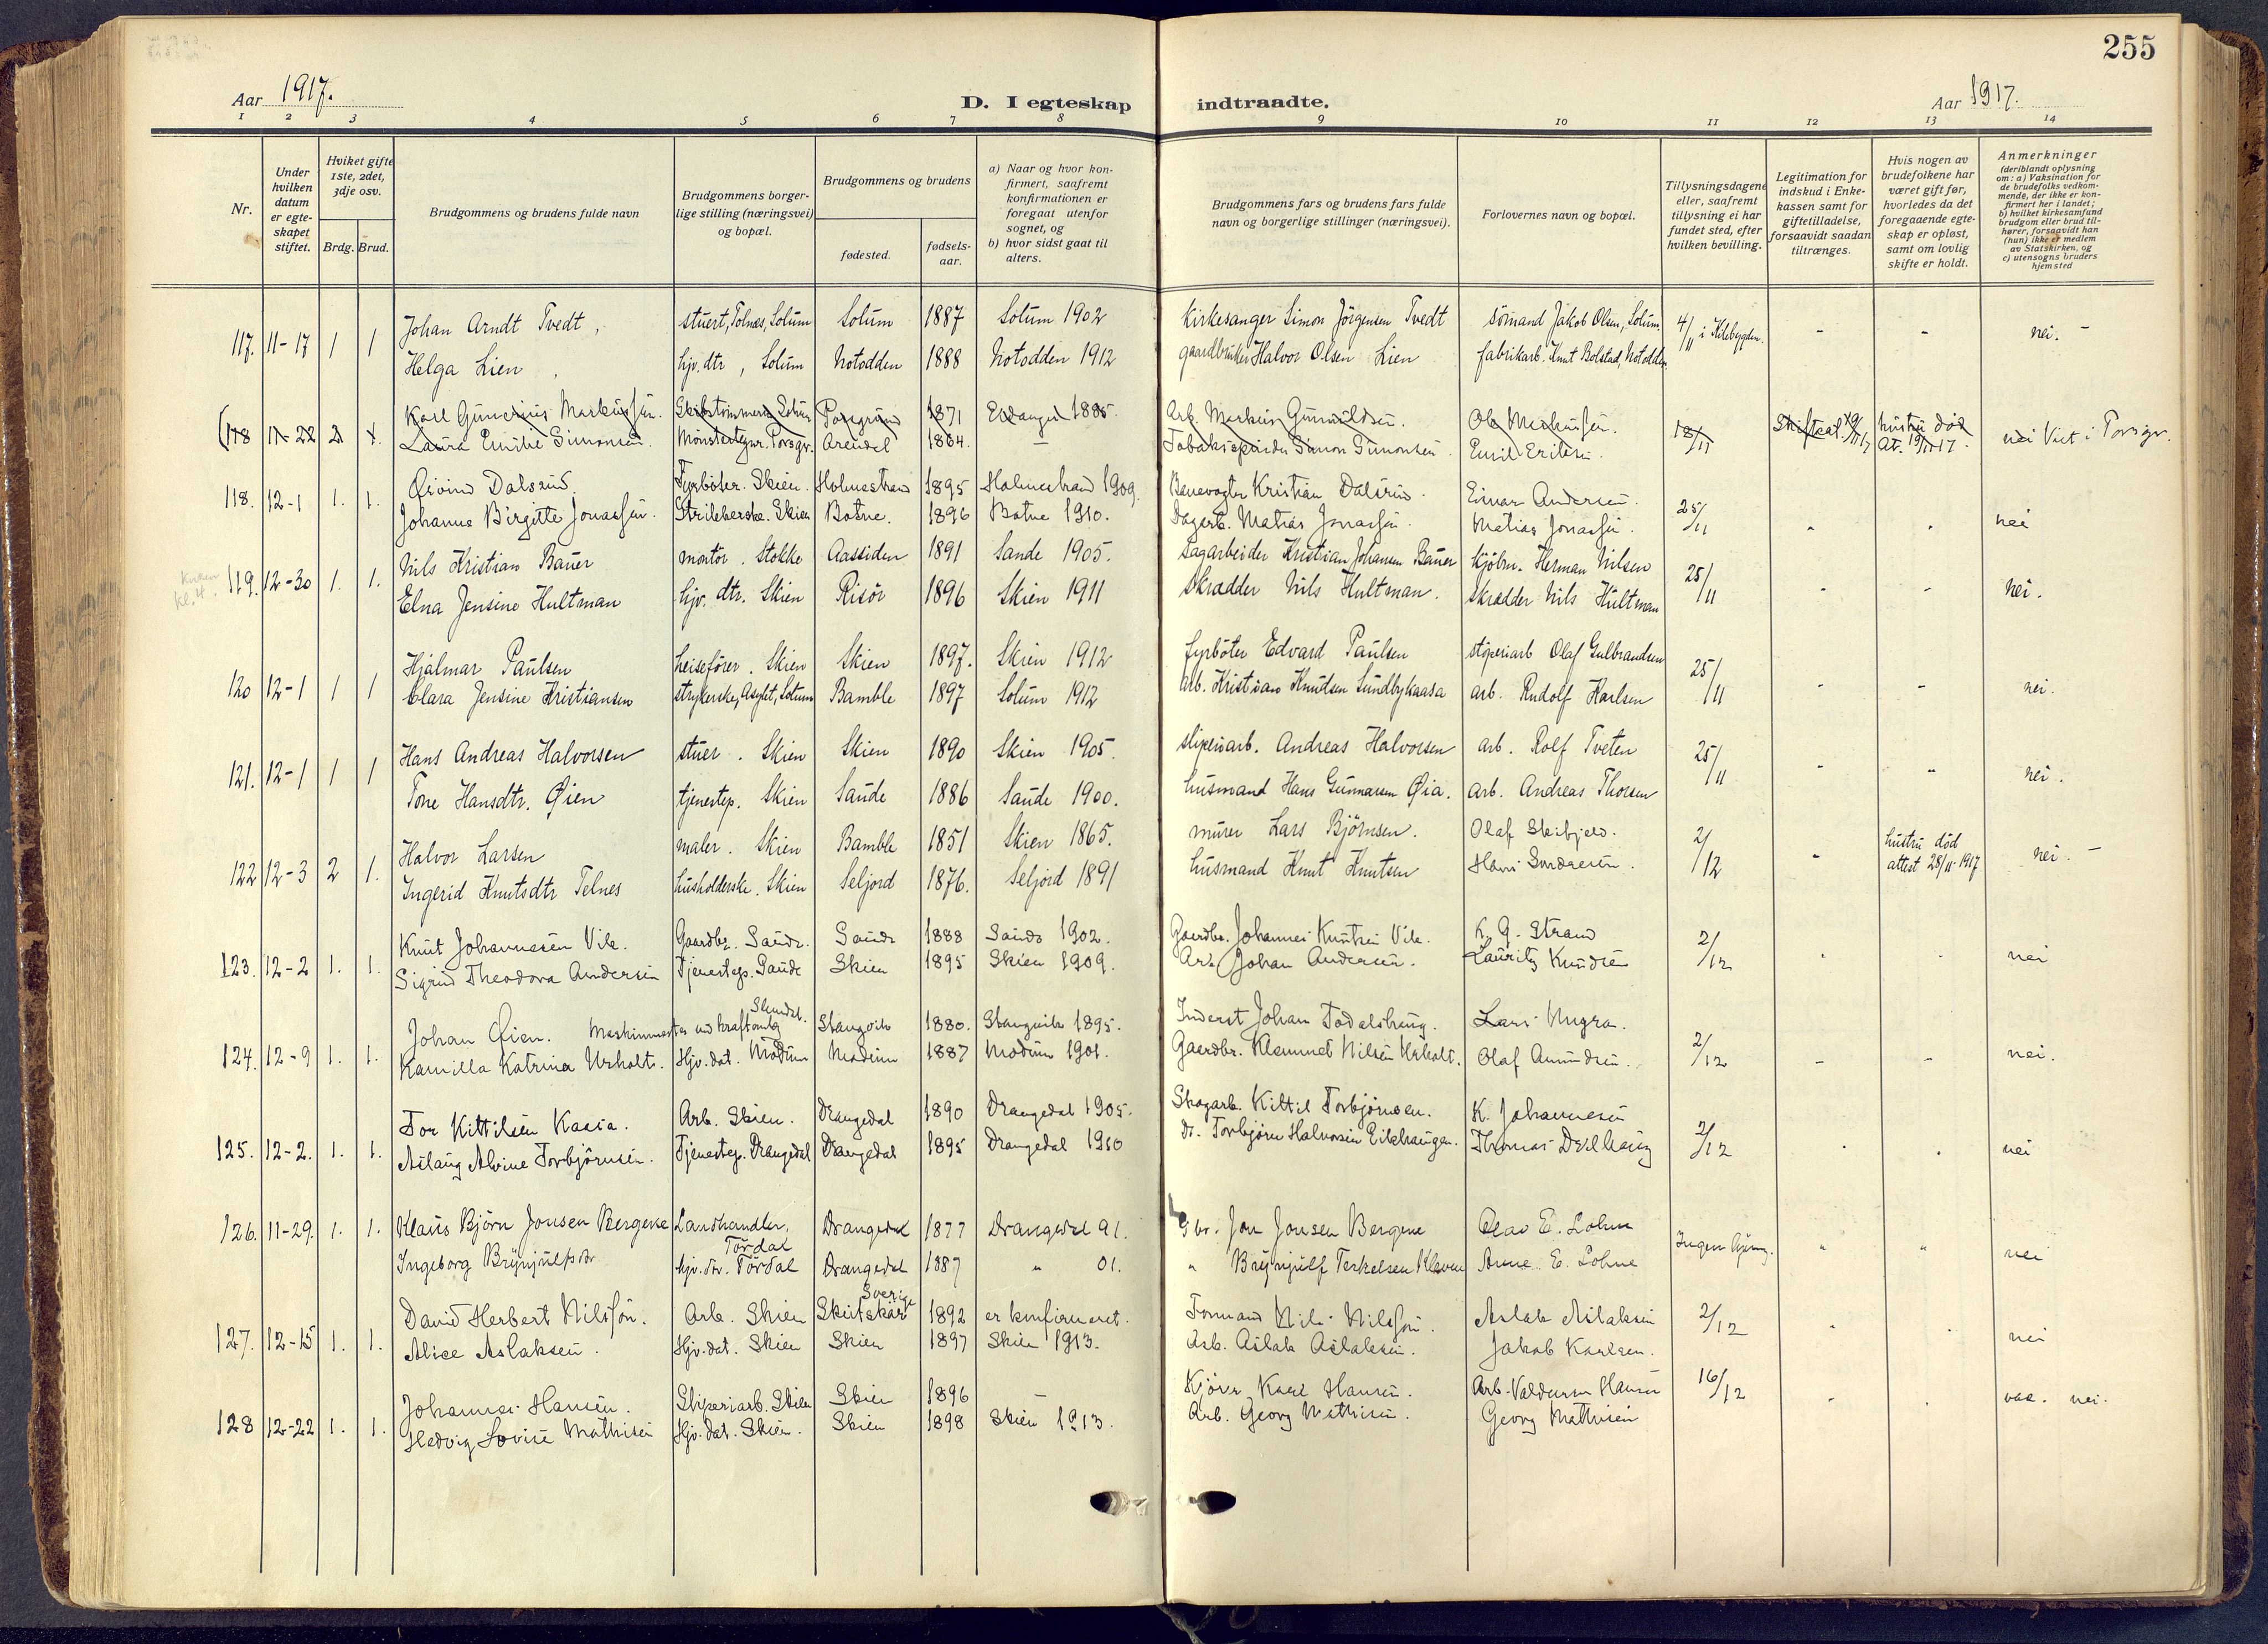 255
Aar 1917.
D. I egteskap indtraadte.
Aar 1917.
1 2 3 4 5 6 7 8 9 10 11 12 13 14
Nr.
Under hvilken datum er egte-skapet stiftet.
Hviket gifte 1ste, 2det, 3dje osv.
Brdg. Brud.
Brudgommens og brudens fulde navn
Brudgommens borger-lige stilling (næringsvei) og bopæl.
Brudgommens og brudens
fødested.
fødsels-aar.
a) Naar og hvor kon-firmert, saafremt konfirmationen er foregaat utenfor sognet, og
b) hvor sidst gaat til alters.
Brudgommens fars og brudens fars fulde navn og borgerlige stillinger (næringsvei).
Forlovernes navn og bopæl.
Tillysningsdagene eller, saafremt tillysning ei har fundet sted, efter hvilken bevilling.
Legitimation for indskud i Enke-kassen samt for giftetilladelse, forsaavidt saadan tiltrænges.
Hvis nogen av brudefolkene har været gift før, hvorledes da det foregaaende egte-skap er opløst, samt om lovlig skifte er holdt.
Anmerkninger (deriblandt oplysning om: a) Vaksination for de brudefolks vedkom-mende, der ikke er kon-firmert her i landet; b) hvilket kirkesamfund brudgom eller brud til-hører, forsaavidt han (hun) ikke er medlem av Statskirken, og c) utensogns bruders hjemsted
117. 11-17 1 1 Johan Arndt Tvedt, stuert, Tolnæs, Solum Solum 1887 Solum 1902 Kirkesanger Simon Jörgensen Tvedt sömand Jakob Olsen, Solum. 4/11 i Kilebygden. - - nei. -
Helga Lien, hjv. dtr, Solum Notodden 1888 Notodden 1912 gaardbruker Halvor Olsen Lien fabrikarb. Knut Bolstad, Notodden
(118 11-22 2 1. Karl Gunerius Markussen. Skibstömmerm. Solum Porsgrund 1871 Eidanger 1885. Arb. Markus Gunnildsen. Ole Markussen. 18/11 Skifteat. 19/11 17 hustru død At. 19/11 17. nei Viet i Porsgr.
Laura Emilie Simonsen. Mönstertegner. Porsgr. Arendal 1864. - Tobakspinder Simon Simonsen Emil Eriksen.
118. 12-1 1. 1. Øivind Dalsrud. Fyrböter. Skien. Holmestrand 1895 Holmestrand 1909. Banevogter Kristian Dalsrud. Einar Andersen. 25/11 - - nei
Johanne Birgitte Jonassen. Skien Botne. 1896 Botne 1910. Dagarb. Matias Jonassen. Matias Jonassen.
kl. 4.
119. 12-30 1. 1. Nils Kristian Bauer montör. Stokke Aassiden 1891 Sande 1905. Sagarbeider Kristian Johansen Bauer kjöbm. Herman Nilsen 25/11 - - nei.
Elna Jensine Hultman hjv. dtr. Skien Risör 1896 Skien 1911 Skrædder Nils Hultman. Skrædder Nils Hultman
120 12-1 1 1 Hjalmar Paulsen heisefører. Skien Skien 1897. Skien 1912 fyrböter Edvard Paulsen stöperiarb Olaf Gulbrandsen 25/11 - - nei.
Clara Jensine Kristiansen strykerske, Asylet, Solum Bamble 1897 Solum 1912 arb. Kristian Knudsen Sundbykaasa arb. Rudolf Karlsen
121. 12-1 1 1 Hans Andreas Halvorsen stuer. Skien Skien 1890 Skien 1905. sliperiarb. Andreas Halvorsen arb. Rolf Tveten 25/11 - - nei.
Tone Hansdtr. Øien tjenestep. Skien Saude 1886 Saude 1900. husmand Hans Gunnarsen Øia. arb. Andreas Thorsen
122 12-3 2 1. Halvor Larsen maler. Skien Bamble 1851 Skien 1865. murer Lars Björnsen. Olaf 2/12 - hustru død attest 28/11 1917 nei. -
Ingerid Knutsdtr Telnes husholderske. Skien Seljord 1876. Seljord 1891 husmand Knut Knutsen Hans
123. 12-2 1. 1. Knut Johannesen Vile. Gaardbr. Saude. Saude 1888 Saude 1902. Gaardbr. Johannes Knutsen Vile. K. G. Strand 2/12 - - nei
Sigrid Theodora Andersen Tjenestep. Saude Skien 1895 Skien 1909. Arb. Johan Andersen. Lauritz Knudsen
124. 12-9 1. 1. Johan Øien. Maskinmester ved kraftanlæg Stangvik 1880. Stangvik 1895. Inderst Johan Todalshaug. Lars Mugra. 2/12 - - nei.
Kamilla Katrina Urholt. Hjv. dat. Modum Modum 1887 Modum 1901. Gaardbr. Klemmet Nilsen Urholt. Olaf Amundsen.
125. 12-2. 1. 1. Tor Kittilsen Kaasa. Arb. Skien. Drangedal 1890 Drangedal 1905. Skogarb. Kittil Torbjörnsen. K. Johannesen 2/12 - - nei
Aslaug Alvine Torbjörnsen. Tjenestep. Drangedal Drangedal 1895 Drangedal 1910 do. Torbjörn Halvorsen Eikhaugen. Thomas
126. 11-29. 1. 1. Klaus Björn Jonsen Bergene Landhandler, Tördal Drangedal 1877 Drangedal 91. Gbr. Jon Jonsen Bergene Olav E. Lohne Ingen lysning. " " nei
Ingeborg Brynjulfsdtr hjv. dtr. Tördal Drangedal 1887 " 01. " Brynjulf Terkelsen Kleven Anne E. Lohne
127. 12-15 1. 1. David Herbert Nilsson. Arb. Skien Skutskär Sverige 1892 er konfirmeret. Formand Nils Nilsson. Aslak Aslaksen 2/12 - - nei
Alice Aslaksen. Hjv. dat. Skien Skien 1897 Skien 1913. Arb. Aslak Aslaksen. Jakob Karlsen.
128 12-22 1. 1. Johannes Hansen. Sliperiarb. Skien Skien 1896 - Kjörer Karl Hansen. Arb. Valdemar Hansen 16/12 - - vac. nei.
Hedvig Lovise Mathisen Hjv. dat. Skien. Skien 1898 Skien 1913. Arb. Georg Mathisen. Georg Mathisen